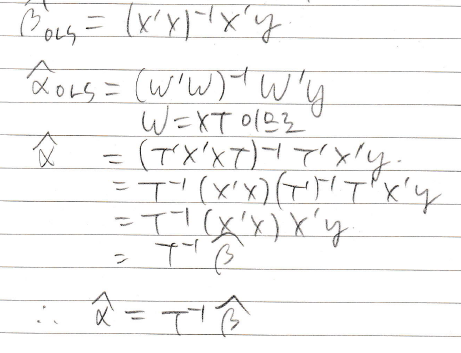 β̂OLS = (X'X)⁻¹X'y
α̂OLS = (W'W)⁻¹W'y
W = XT 이므로
α̂ = (T'X'XT)⁻¹ T'X'y.
= T⁻¹ (X'X)(T')⁻¹ T'X'y
= T⁻¹ (X'X) X'y
= T⁻¹ β̂
∴ α̂ = T⁻¹ β̂